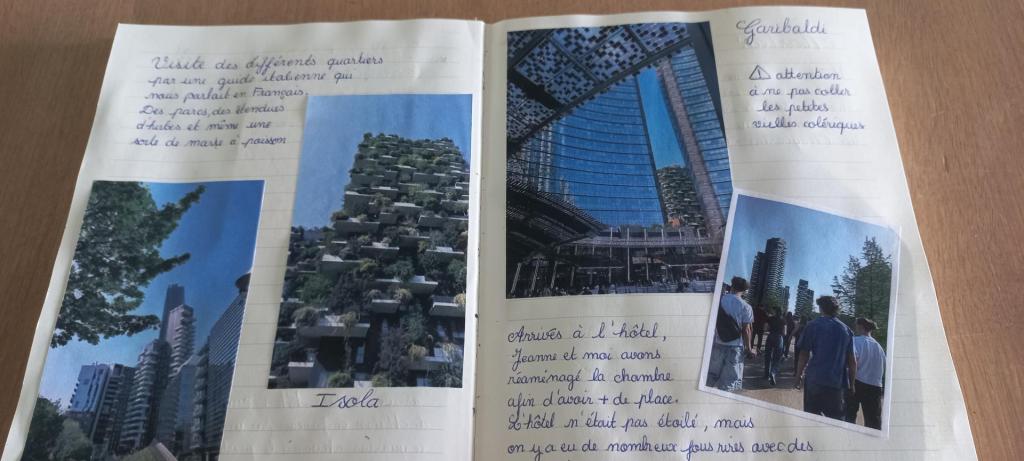 Visite des différents quartiers
par une guide italienne qui
nous parlait en Français.
Des parcs, des étendues
d'herbes et même une
sorte de marre à poisson
Isola
Garibaldi
⚠ attention
à ne pas coller
les petites
vielles colériques
Arrivés à l'hôtel,
Jeanne et moi avons
réaménagé la chambre
afin d'avoir + de place.
L'hôtel n'était pas étoilé, mais
on y a eu de nombreux fous rires avec des